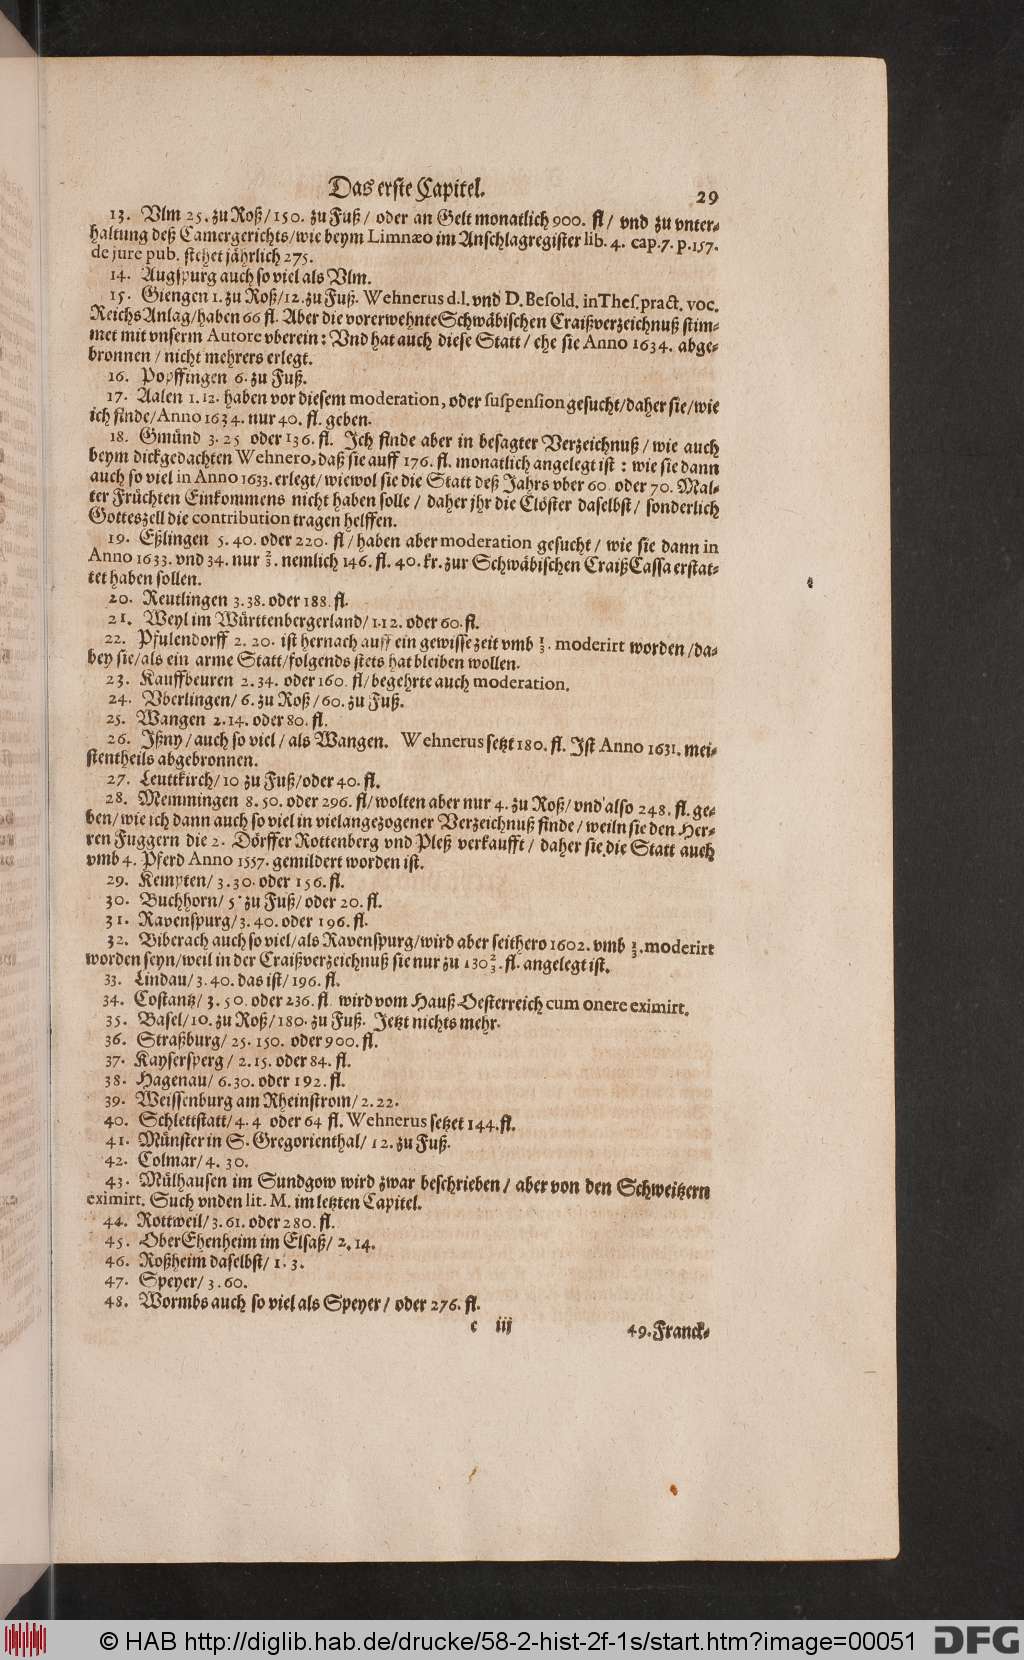 Das erste Capitel.
29
13. Vlm 25. zu Roß/150. zu Fuß/ oder an Gelt monatlich 900. fl/ vnd zu vnter-
haltung deß Camergerichts/wie beym Limnæo im Anschlagregister lib. 4. cap. 7. p. 157.
de jure pub. stehet jährlich 275.
14. Augspurg auch so viel als Vlm.
15. Giengen 1. zu Roß/12. zu Fuß. Wehnerus d. l. vnd D. Besold. in Thes. pract. voc.
Reichs Anlag/haben 66 fl. Aber die vorerwehnte Schwäbischen Craißverzeichnuß stim-
met mit vnserm Autore vberein: Vnd hat auch diese Statt/ ehe sie Anno 1634. abge-
bronnen/ nicht mehrers erlegt.
16. Popffingen 6. zu Fuß.
17. Aalen 1. 12. haben vor diesem moderation, oder suspension gesucht/daher sie/wie
ich finde/Anno 1634. nur 40. fl. geben.
18. Gmünd 3. 25 oder 136. fl. Ich finde aber in besagter Verzeichnuß/ wie auch
beym dickgedachten Wehnero, daß sie auff 176. fl. monatlich angelegt ist: wie sie dann
auch so viel in Anno 1633. erlegt/wiewol sie die Statt deß Jahrs vber 60 oder 70. Mal-
ter Früchten Einkommens nicht haben solle/ daher jhr die Clöster daselbst/ sonderlich
Gotteszell die contribution tragen helffen.
19. Eßlingen 5. 40. oder 220. fl/ haben aber moderation gesucht/ wie sie dann in
Anno 1633. vnd 34. nur ⅔. nemlich 146. fl. 40. kr. zur Schwäbischen CraißCassa erstat-
tet haben sollen.
20. Reutlingen 3. 38. oder 188. fl.
21. Weyl im Württenbergerland/ 1. 12. oder 60. fl.
22. Pfulendorff 2. 20. ist hernach auff ein gewisse zeit vmb ⅓. moderirt worden/da-
bey sie/als ein arme Statt/folgends stets hat bleiben wollen.
23. Kauffbeuren 2. 34. oder 160. fl/begehrte auch moderation.
24. Vberlingen/ 6. zu Roß/60. zu Fuß.
25. Wangen 2. 14. oder 80. fl.
26. Jßny/auch so viel/als Wangen. Wehnerus setzt 180. fl. Ist Anno 1631. mei-
stentheils abgebronnen.
27. Leuttkirch/10 zu Fuß/oder 40. fl.
28. Memmingen 8. 50. oder 296. fl/wolten aber nur 4. zu Roß/ vnd also 248. fl. ge-
ben/wie ich dann auch so viel in vielangezogener Verzeichnuß finde/weiln sie den Her-
ren Fuggern die 2. Dörffer Rottenberg vnd Pleß verkaufft/ daher sie die Statt auch
vmb 4. Pferd Anno 1557. gemildert worden ist.
29. Kempten/ 3. 30. oder 156. fl.
30. Buchhorn/ 5. zu Fuß/oder 20. fl.
31. Ravenspurg/3. 40. oder 196. fl.
32. Biberach auch so viel/als Ravenspurg/wird aber seithero 1602. vmb ⅓. moderirt
worden seyn/weil in der Craißverzeichnuß sie nur zu 130⅔. fl. angelegt ist.
33. Lindau/3. 40. das ist/196. fl.
34. Costantz/ 3. 50. oder 236. fl. wird vom Hauß Oesterreich cum onere eximirt.
35. Basel/10. zu Roß/180. zu Fuß. Jetzt nichts mehr.
36. Straßburg/ 25. 150. oder 900. fl.
37. Kaysersperg/ 2. 15. oder 84. fl.
38. Hagenau/ 6. 30. oder 192. fl.
39. Weissenburg am Rheinstrom/ 2. 22.
40. Schlettstatt/4. 4 oder 64 fl. Wehnerus setzet 144. fl.
41. Münster in S. Gregorienthal/ 12. zu Fuß.
42. Colmar/4. 30.
43. Mülhausen im Sundgow wird zwar beschrieben/ aber von den Schweitzern
eximirt. Such vnden lit. M. im letzten Capitel.
44. Rottweil/3. 61. oder 280. fl.
45. OberEhenheim im Elsaß/ 2. 14.
46. Roßheim daselbst/ 1. 3.
47. Speyer/ 3. 60.
48. Wormbs auch so viel als Speyer/ oder 276. fl.
e iij
49. Franck-
© HAB http://diglib.hab.de/drucke/58-2-hist-2f-1s/start.htm?image=00051
DFG